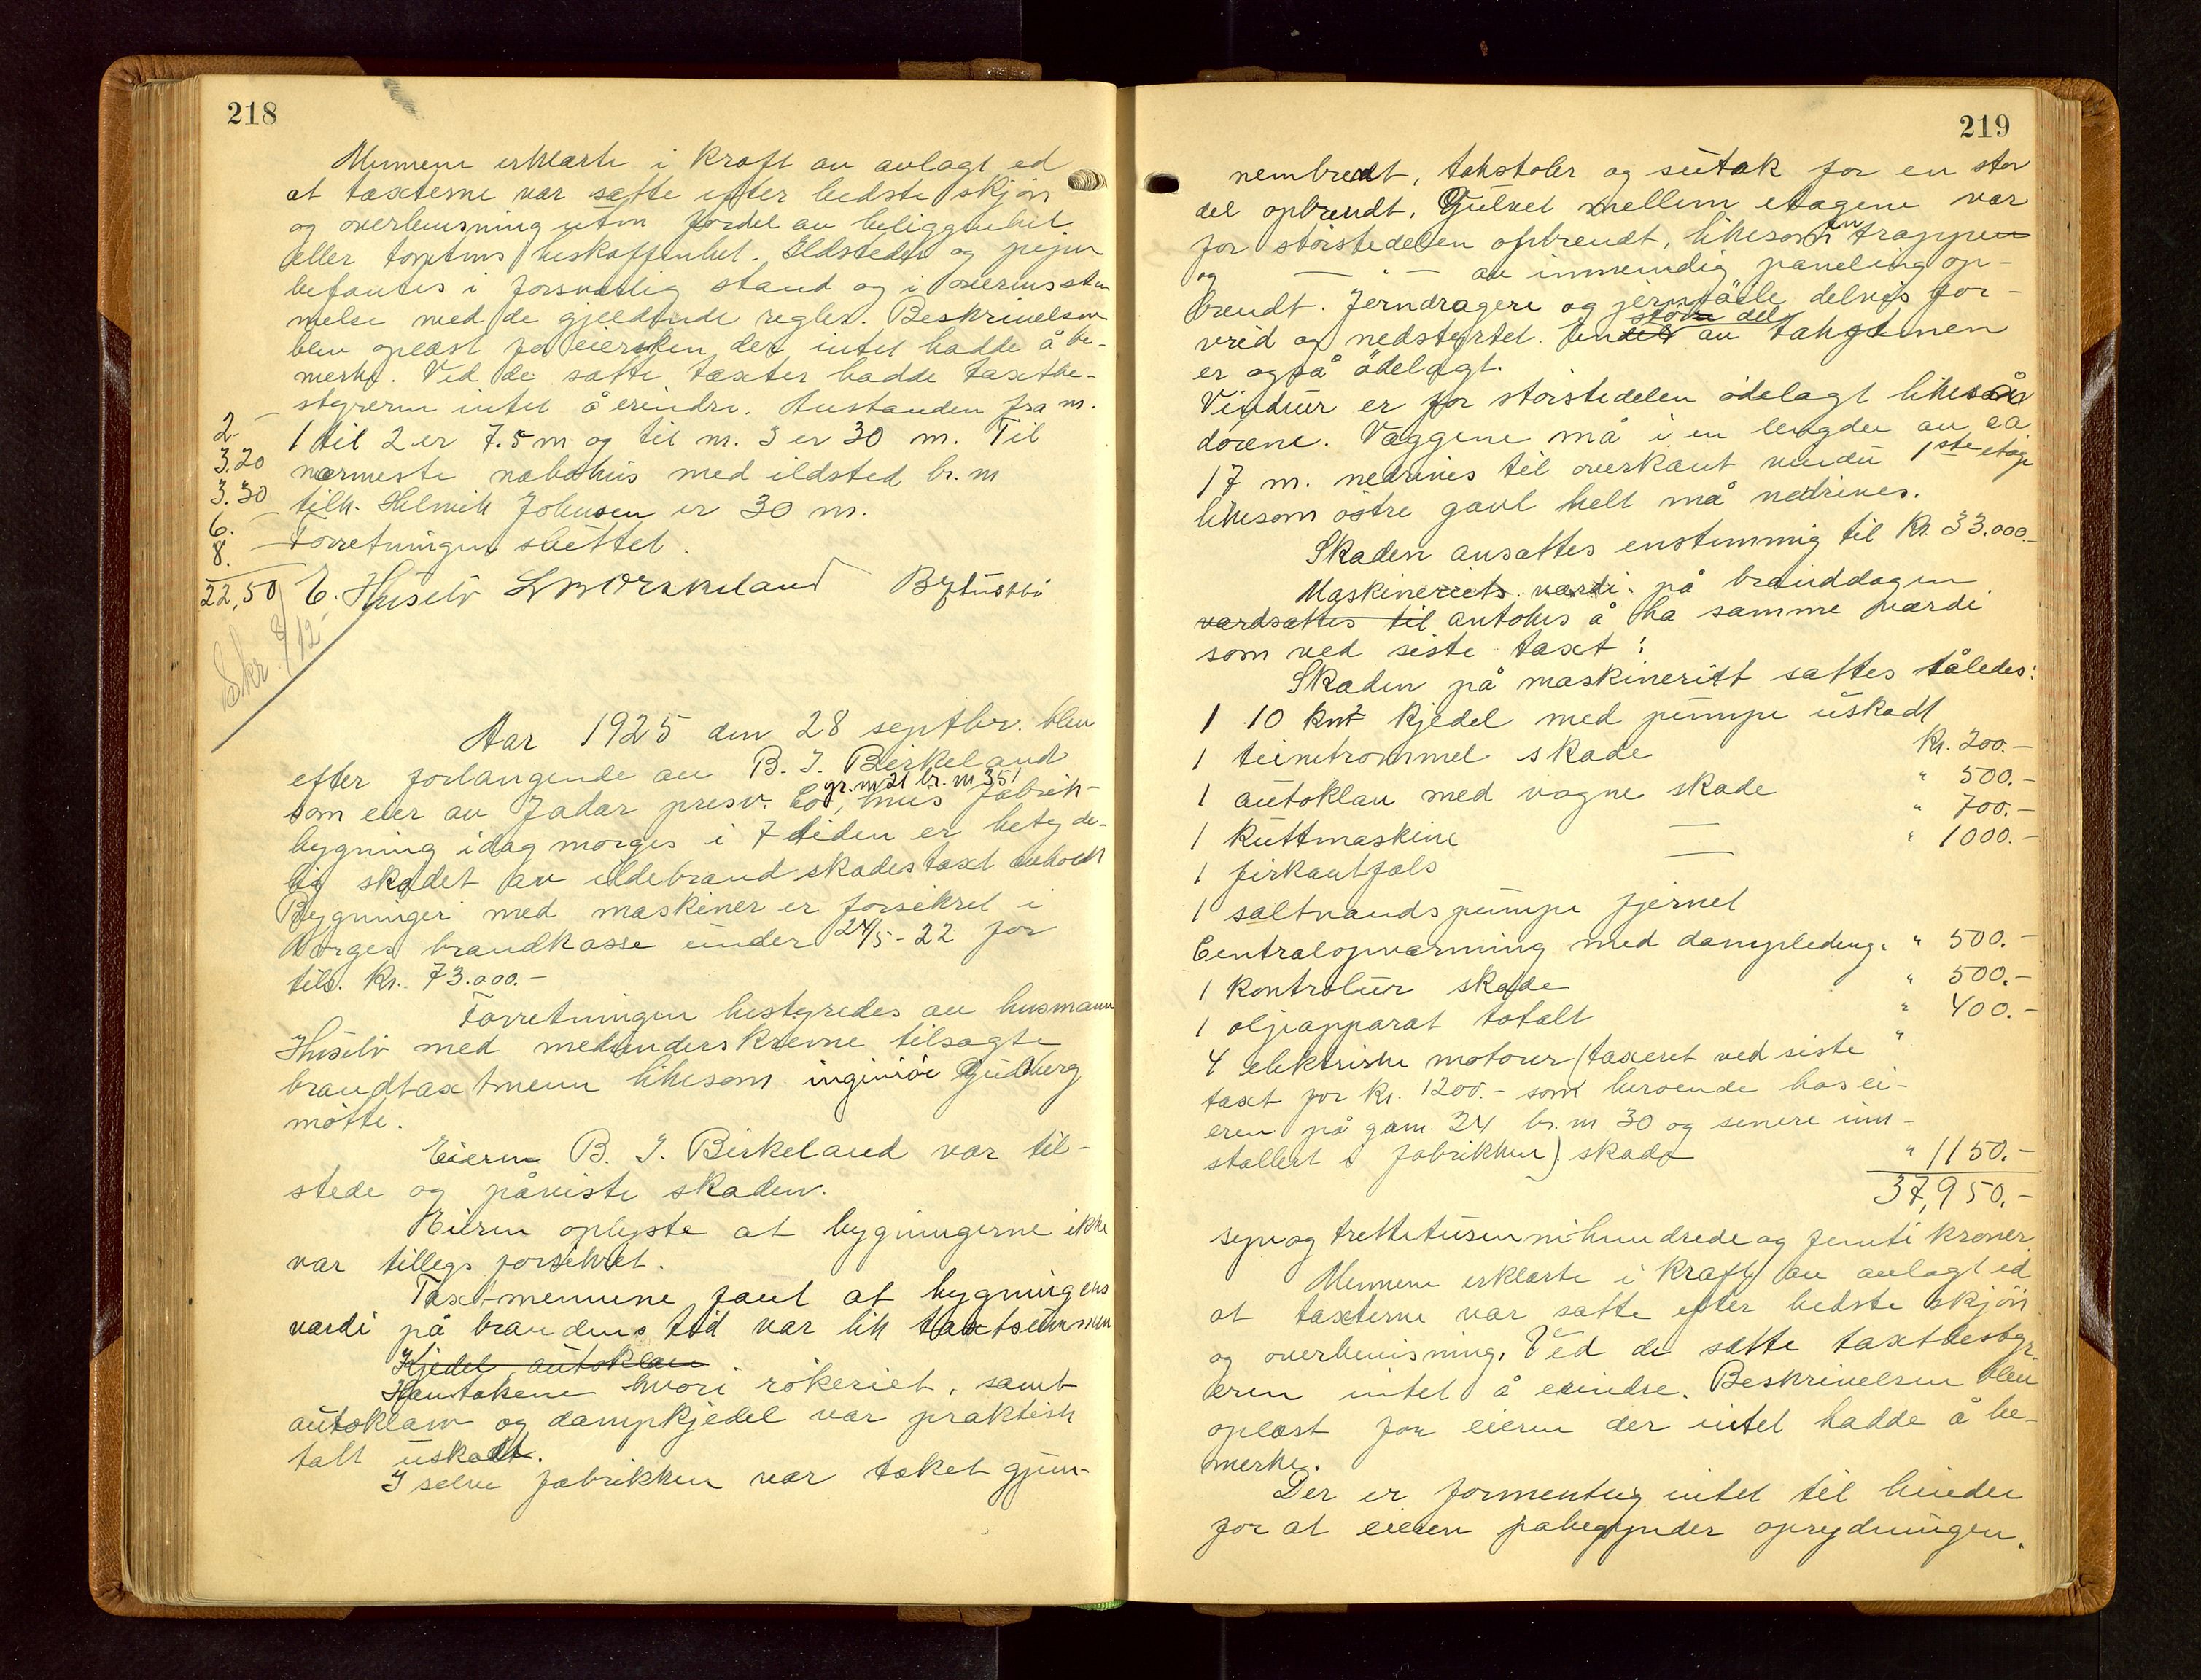 218
Mennene erklærte i kraft av avlagt ed
at taxterne var satte efter bedste skjøn
og overbevisning uten fordel av beliggenhet
eller tomtens beskaffenhet. Ildsteder og piper
befantes i forsvarlig stand og i overensstem
melse med de gjeldende regler. Beskrivelsen
blev oplæst for eiersken der intet hadde å be-
merke. Ved de satte taxter hadde taxtbe-
styreren intet å erindre. Avstanden fra nr.
1 til 2 er 7.5 m og til nr. 3 er 30 m. Til
nærmeste nabohus med ildsted br. nr
tilh. Helmik Johnsen er 30 m.
Forretningen sluttet.
2 -
3.20
3.30
6. -
8. -
22,50
E. Husebø
Skr. 8/12-
Aar 1925 den 28 septbr. blev
efter forlangende av B. I. Birkeland
gr. nr 21 br. nr 351
som eier av Jadar presv. Co, hvis fabrik-
bygning idag morges i 7 tiden er betyde-
lig skadet av ildebrand skadestaxt avholdt
Bygninger med maskiner er forsikret i
Norges brandkasse under 24/5-22 for
tils. Kr. 73.000.-
Forretningen bestyredes av husmann
Husebø med medunderskrevne tilsagte
brandtaxtmenn likesom ingeniør Guldberg
møtte.
Eieren B. I. Birkeland var til-
stede og påviste skaden.
Eieren oplyste at bygningerne ikke
var tillegs forsikret.
Taxtmennene fant at bygningens
værdi på brandens tid var lik taxtsummen
Kjedel autoklav
hvori røkeriet, samt
autoklav og dampkjedel var praktisk
talt uskadt.
I selve fabrikken var taket gjen-
219
nembrendt, takstoler og sutak for en stor
del opbrendt. Gulvet mellem etagene var
for størstedelen opbrendt, likesom en trappen
og — " — av innvendig paneling op-
brendt. Jerndragere og jernsøile delvis for-
større del
vrid og nedstyrtet. Endel av takstenen
er også ødelagt.
Vinduer er for størstedelen ødelagt likesom
dørene. Væggene må i en lengde av ca
17 m. nedrives til overkant vindu 1ste etage
likesom østre gavl helt må nedrives.
Skaden ansattes enstemmig til Kr. 33.000.-
Maskineriets værdi på branddagen
værdsattes til antokes å ha samme værdi
som ved siste taxt:
Skaden på maskineriet sattes således:
1 10 km² kjedel med pumpe uskadt
1 teinetrommel skade Kr. 200.-
1 autoklav med vogne skade " 500.-
1 Kuttmaskine — " 700.-
1 firkantfals — " 1000.-
1 saltvandspumpe fjernet
Centralopvarming med dampledng. " 500.-
1 Kontrolur skade " 500.-
1 oljeapparat totalt " 400.-
4 elektriske motorer (taxeret ved siste "
taxt for kr. 1200.- som beroende hos ei-
eren på gnr. 24 br. nr 30 og senere inn-
stallert i fabrikken) skade " 1150.-
37,950.-
syv og trettitusen nihundrede og femti kroner
Mennene erklærte i kraft av avlagt ed
at taxterne var satte efter bedste skjøn
og overbevisning. Ved de satte taxtbesty-
eren intet å erindre. Beskrivelsen blev
oplæst for eieren der intet hadde å be-
merke.
Der er formentlig intet til hinder
for at eieren påbegynder oprydningen.